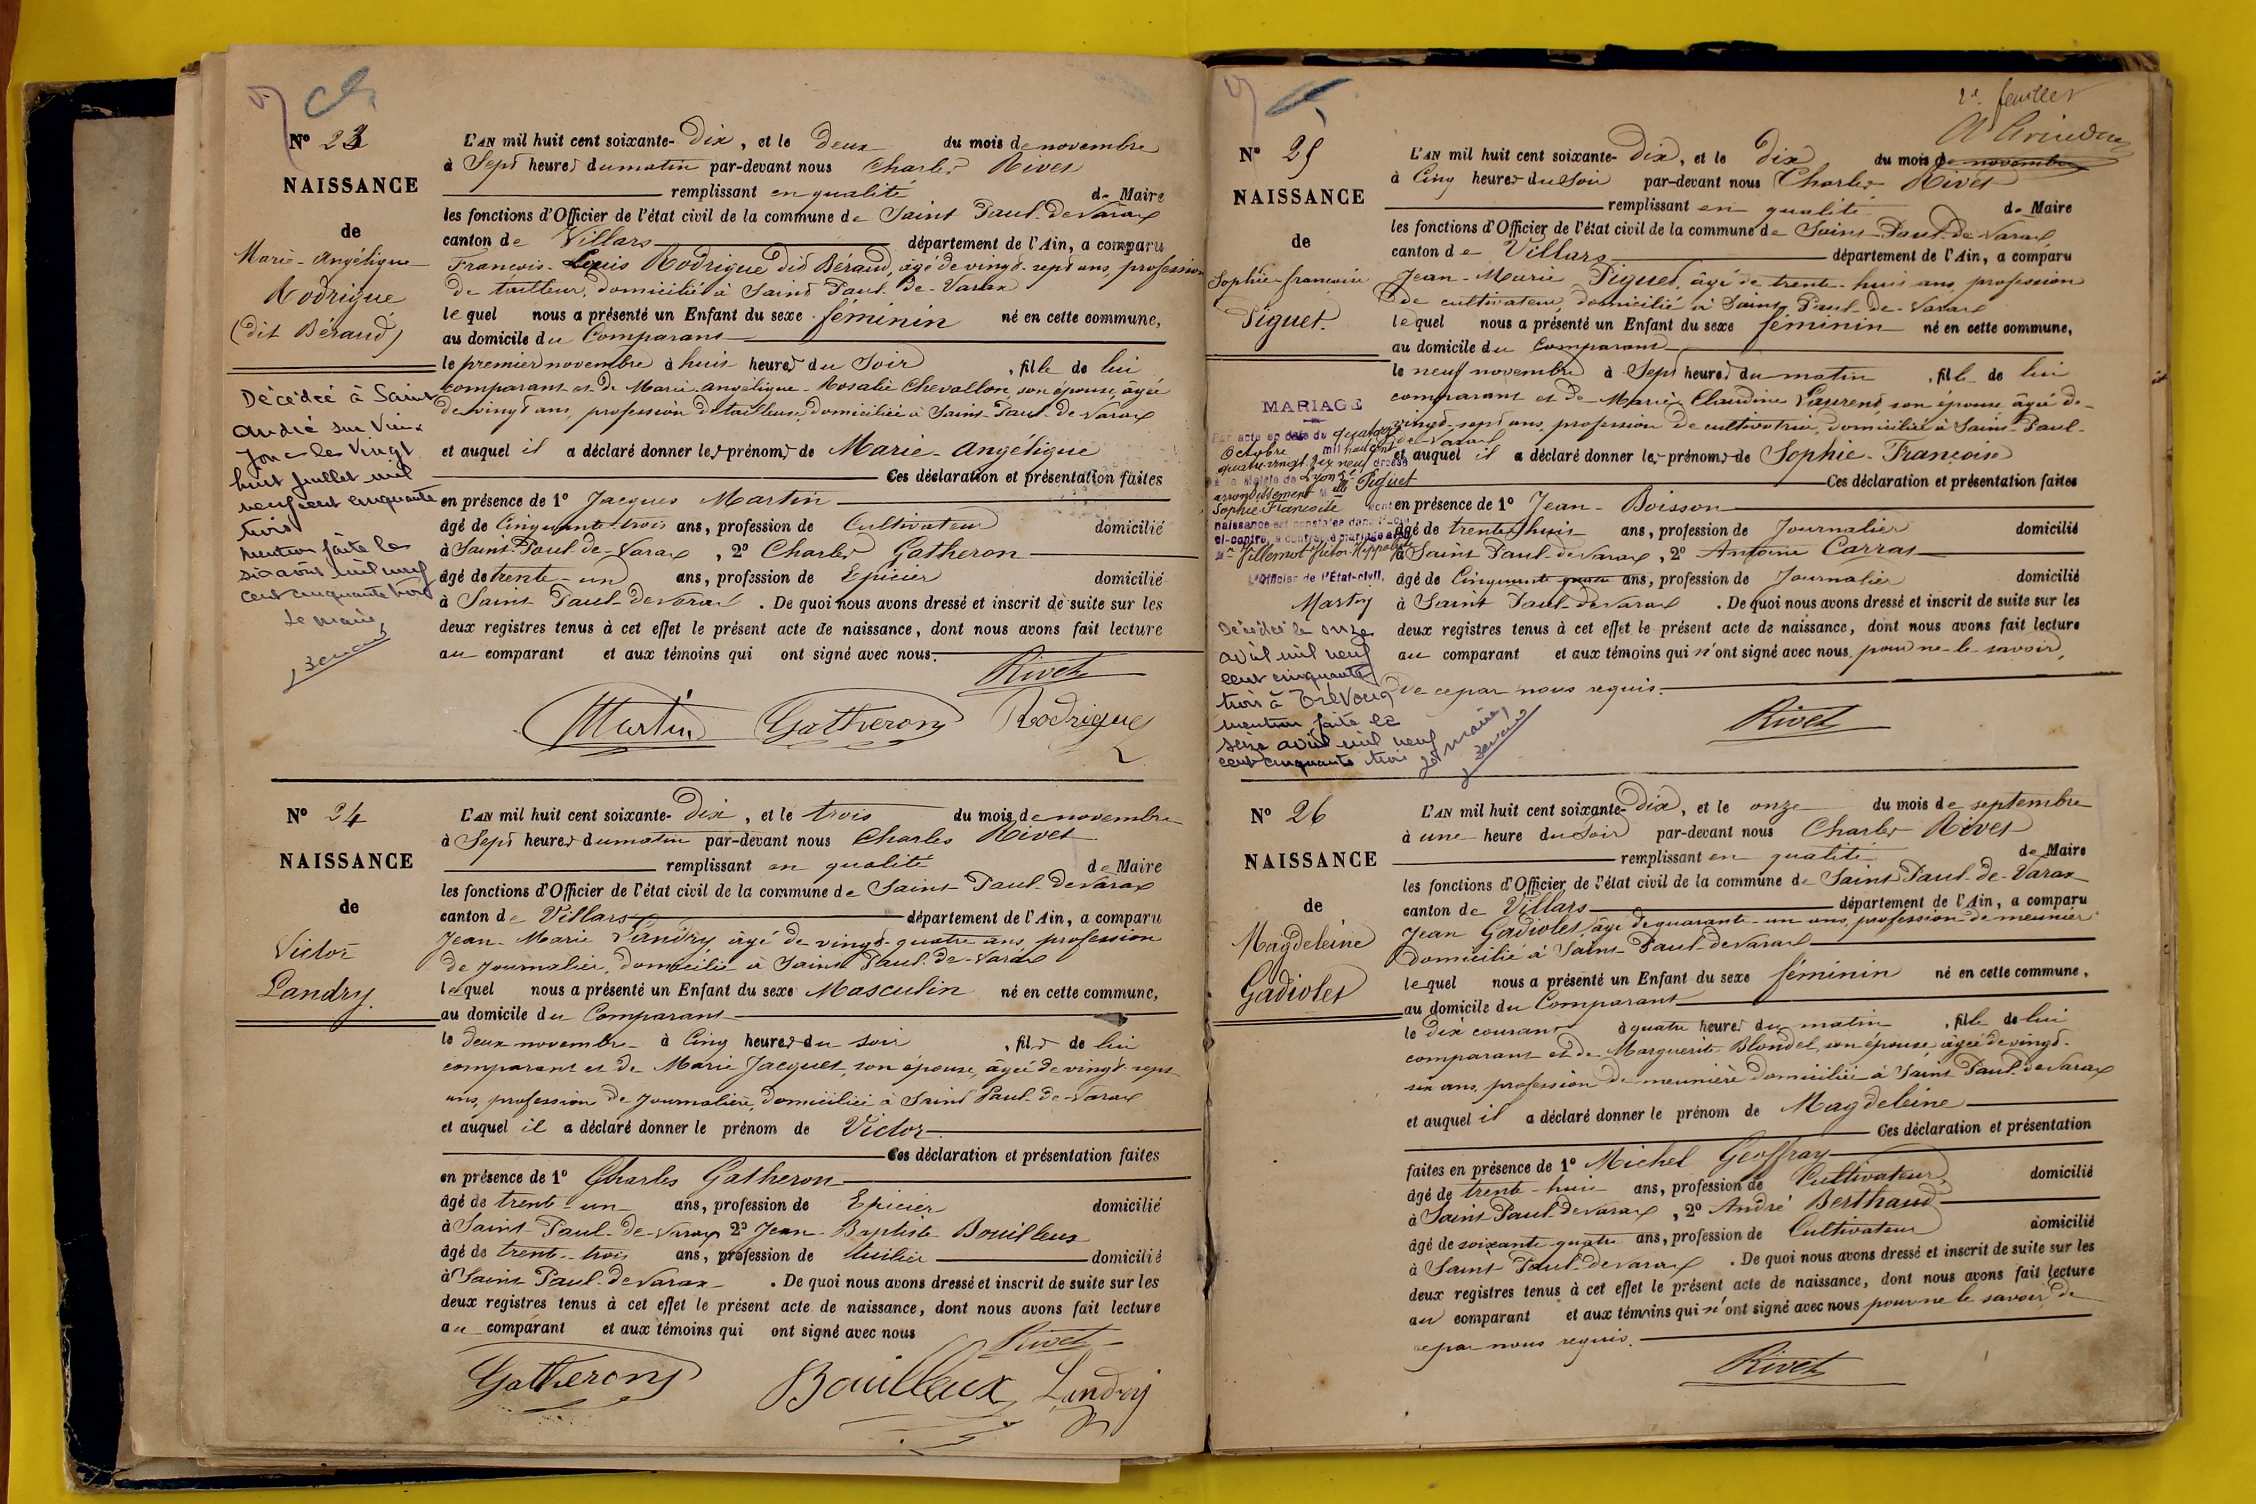 Nº 23
NAISSANCE
de
Marie-Angélique
Rodrigue
(dit Béraud)
Décédée à Saint
André sur Vieux
Jonc le Vingt
huit Juillet mil
neuf cent cinquante
trois
mention faite le
six août mil neuf
cent cinquante trois
Le maire,
L'AN mil huit cent soixante-dix, et le deux du mois de novembre
à Sept heures du matin par-devant nous Charles Rivet
remplissant en qualité de Maire
les fonctions d'Officier de l'état civil de la commune de Saint Paul-de Varax
canton de Villars département de l'Ain, a comparu
François-Louis Rodrigue dit Béraud, âgé de vingt-sept ans, profession
de tailleur, domicilié à Saint Paul-de-Varax
lequel nous a présenté un Enfant du sexe féminin né en cette commune,
au domicile du Comparant
le premier novembre à huit heures du Soir, fille de lui
comparant et de Marie-Angélique-Rosalie Chevallon, son épouse, âgée
de vingt ans, profession de tailleuse, domiciliée à Saint-Paul-de-Varax
et auquel il a déclaré donner les prénoms de Marie-Angélique
Ces déclaration et présentation faites
en présence de 1º Jacques Martin
âgé de Cinquante-trois ans, profession de Cultivateur domicilié
à Saint-Paul-de-Varax, 2º Charles Gatheron
âgé de trente-un ans, profession de Epicier domicilié
à Saint Paul-de Varax. De quoi nous avons dressé et inscrit de suite sur les
deux registres tenus à cet effet le présent acte de naissance, dont nous avons fait lecture
au comparant et aux témoins qui ont signé avec nous.
Rivet
Martin Gatheron Rodrigue
Nº 24
NAISSANCE
de
Victor
Landry.
L'AN mil huit cent soixante-dix, et le trois du mois de novembre
à Sept heures du matin par-devant nous Charles Rivet
remplissant en qualité de Maire
les fonctions d'Officier de l'état civil de la commune de Saint Paul-de Varax
canton de Villars département de l'Ain, a comparu
Jean-Marie Landry, âgé de vingt-quatre ans, profession
de Journalier, domicilié à Saint Paul-de-Varax
lequel nous a présenté un Enfant du sexe Masculin né en cette commune,
au domicile du Comparant
le deux novembre à Cinq heures du soir, fils de lui
comparant et de Marie Jacquet, son épouse, âgée de vingt-sept
ans, profession de Journalière, domiciliée à Saint Paul-de-Varax
et auquel il a déclaré donner le prénom de Victor
Ces déclaration et présentation faites
en présence de 1º Charles Gatheron
âgé de trente-un ans, profession de Epicier domicilié
à Saint-Paul-de-Varax 2º Jean-Baptiste Bouilleux
âgé de trente-trois ans, profession de domicilié
à Saint Paul-de Varax. De quoi nous avons dressé et inscrit de suite sur les
deux registres tenus à cet effet le présent acte de naissance, dont nous avons fait lecture
au comparant et aux témoins qui ont signé avec nous
Rivet
Gatheron Bouilleux Landry
2e feuillet
Nº 25
NAISSANCE
de
Sophie-françoise
Piguet.
MARIAGE
Par acte en date du quatorze
Octobre mil huit cent
quatre-vingt dix neuf dressé
à la Mairie de Lyon
arrondissement Melle Piguet
Sophie Françoise dont
naissance est constatée dans l'acte
ci-contre, a contracté mariage avec
Mr Villemot Victor Hippolyte
L'Officier de l'État-civil,
Martin
Décédée le onze
avril mil neuf
cent cinquante
trois à Trévoux
mention faite le
seize avril mil neuf
cent cinquante trois
Le maire,
L'AN mil huit cent soixante-dix, et le dix du mois de novembre
à Cinq heures du Soir par-devant nous Charles Rivet
remplissant en qualité de Maire
les fonctions d'Officier de l'état civil de la commune de Saint-Paul-de-Varax
canton de Villars département de l'Ain, a comparu
Jean-Marie Piguet, âgé de trente-huit ans, profession
de cultivateur, domicilié à Saint Paul-de-Varax
lequel nous a présenté un Enfant du sexe féminin né en cette commune,
au domicile du Comparant
le neuf novembre à Sept heures du matin, fille de lui
comparant et de Marie Claudine Laurent, son épouse, âgée de
vingt-sept ans, profession de cultivatrice, domiciliée à Saint-Paul-
de-Varax
et auquel il a déclaré donner les prénoms de Sophie-Françoise
Ces déclaration et présentation faites
en présence de 1º Jean-Boisson
âgé de trente-huit ans, profession de Journalier domicilié
à Saint Paul-de Varax, 2º Antoine Carras
âgé de Cinquante-quatre ans, profession de Journalier domicilié
à Saint Paul-de Varax. De quoi nous avons dressé et inscrit de suite sur les
deux registres tenus à cet effet le présent acte de naissance, dont nous avons fait lecture
au comparant et aux témoins qui n'ont signé avec nous, pour ne le savoir,
de ce par nous requis.
Rivet
Nº 26
NAISSANCE
de
Magdeleine
Gadiolet
L'AN mil huit cent soixante-dix, et le onze du mois de septembre
à une heure du Soir par-devant nous Charles Rivet
remplissant en qualité de Maire
les fonctions d'Officier de l'état civil de la commune de Saint Paul-de-Varax
canton de Villars département de l'Ain, a comparu
Jean Gadiolet, âgé de quarante-un ans, profession de meunier
domicilié à Saint-Paul-de Varax
lequel nous a présenté un Enfant du sexe féminin né en cette commune,
au domicile du Comparant
le dix courant à quatre heures du matin, fille de lui
comparant et de Marguerite Blondel, son épouse, âgée de vingt-
six ans, profession de meunière domiciliée à Saint Paul-de Varax
et auquel il a déclaré donner le prénom de Magdeleine
Ces déclaration et présentation
faites en présence de 1º Michel Geoffray
âgé de trente-huit ans, profession de Cultivateur domicilié
à Saint Paul-de Varax, 2º André Berthaud
âgé de soixante-quatre ans, profession de Cultivateur domicilié
à Saint Paul-de Varax. De quoi nous avons dressé et inscrit de suite sur les
deux registres tenus à cet effet le présent acte de naissance, dont nous avons fait lecture
au comparant et aux témoins qui n'ont signé avec nous pour ne le savoir, de
ce par nous requis.
Rivet